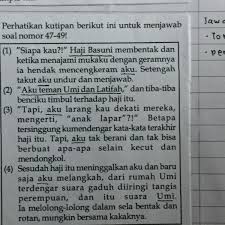 Perhatikan kutipan berikut ini untuk menjawab
soal nomor 47-49!
(1) "Siapa kau?!" Haji Basuni membentak dan
ketika menajami mukaku dengan geramnya
ia hendak mencengkeram aku. Setengah
takut aku undur dan menjawab.
(2) "Aku teman Umi dan Latifah," dan tiba-tiba
benciku timbul terhadap haji itu.
(3) "Tapi, aku larang kau dekati mereka,
mengerti, "anak lapar"?!" Betapa
tersinggung kumendengar kata-kata terakhir
haji itu. Tapi, aku tak berani dan tak bisa
berbuat apa-apa selain kecut dan
mendongkol.
(4) Sesudah haji itu meninggalkan aku dan baru
saja aku melangkah, dari rumah Umi
terdengar suara gaduh diiringi tangis
perempuan, dan itu suara Umi.
Ia melolong-lolong dalam sela bentak dan
rotan, mungkin bersama kakaknya.